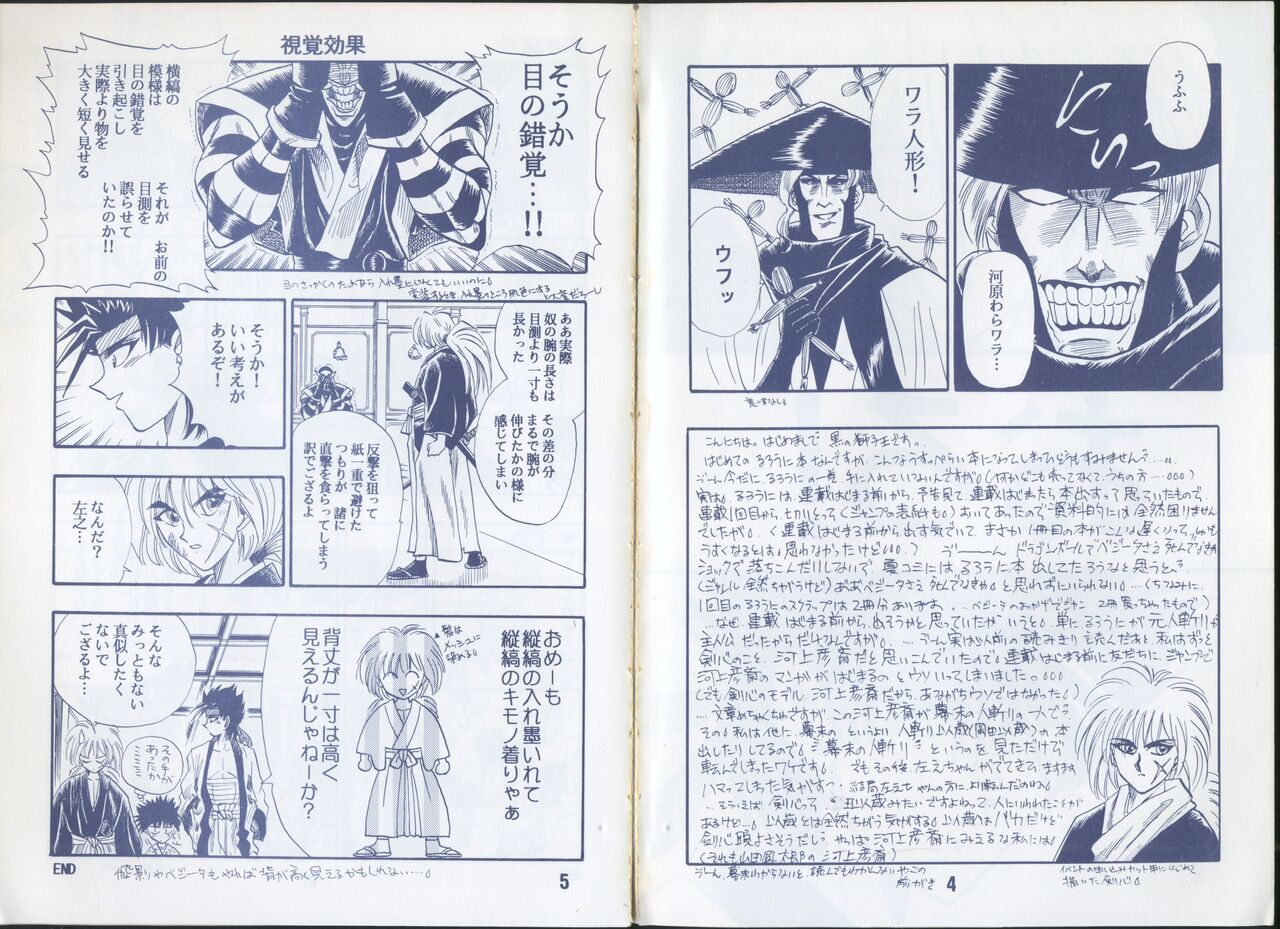 うふふ
にいっ
河原わらワラ…
ワラ人形！
ウフッ
意味なし。
こんにちは。はじめまして 黒の獅子王です。
はじめての るろうに本 なんですが、こんなうすっぺらい本になってしまってどうもすみません？……。
実は、るろうには、連載はじまる前から、予告見て、連載はじまったら本出すって思っていたもので、
連載1回目から、きりとって(ジャンプの表紙も)おいてあったので資料的には全然困りません
でしたが。(連載はじまる前から出す気でいて、まさか1冊目の本がこんな遅くなって、
うすくなるとは。思わなかったけど。。。)
ショックで落ちこんだりしないで夏コミには、るろうに本出してたろうなと思うと、
1回目のるろうにのスクラップは2冊分あります。…ベジータのおかげでジャンプ2冊買っちゃったもので)
…なぜ、連載はじまる前から、出そうかと思っていたかいうと。単に、るろうにが元人斬りが
主人公だったからだけなんですが。……う〜ん実は以前の読みきり読んだあと、私はずっと
剣心のこと、河上彦斎だと思いこんでいたので、連載はじまる前に友だちに、ジャンプで
河上彦斎のマンガがはじまるのとウソいってしまいました。。。。
(でも剣心のモデル、河上彦斎だから、あながちウソではなかった。)
…文章めちゃくちゃですが、この河上彦斎が幕末の人斬りの一人で？
その。私は他に、幕末の というより 人斬り以蔵(岡田以蔵)の本
出したりしてるので。"幕末の人斬り"というのを見ただけで
転んでしまったワケです。 でもその後、左えちゃんがでてきて、ますます
ハマッてしまった気がする…結局左えちゃんの方に、より転んだのね?
…そういえば剣心って、以蔵みたいですよねって、人にいわれたことが
あるけど…以蔵とは全然ちがう気がする。以蔵はバカだけど
剣心頭よさそうだし?やっぱ河上彦斎にみえるな私には。
(それも山田風太郎の河上彦斎)
う〜ん、幕末わからないと、読んでもわかんないやこの
前がき
4
描いた剣心。
視覚効果
そうか
目の錯覚…!!
横縞の
模様は
目の錯覚を
引き起こし
実際より物を
大きく短く見せる
それが お前の
目測を
誤らせて
いたのか!!
目のさっかくのためなら 入れ墨にしなくてもいいのに。
変装するとき、入れ墨のところ肌色にする
と大変だろーし
ああ実際
奴の腕の長さは
目測より一寸も
長かった
その差の分
まるで腕が
伸びたかの様に
感じてしまい
反撃を狙って
紙一重で避けた
つもりが 諸に
直撃を食らってしまう
訳でござるよ
そうか！
いい考えが
あるぞ！
なんだ？
左之…
おめーも
縦縞の入れ墨いれて
縦縞のキモノ着りゃあ
背丈が一寸は高く
見えるんじゃねーか？
髪は
メッシュに
染める。
そんな
みっともない
真似したく
ないで
ござるよ…
その手が
あったか
END
飛影やベジータも やれば 背が高く見えるかもしれない……。
5